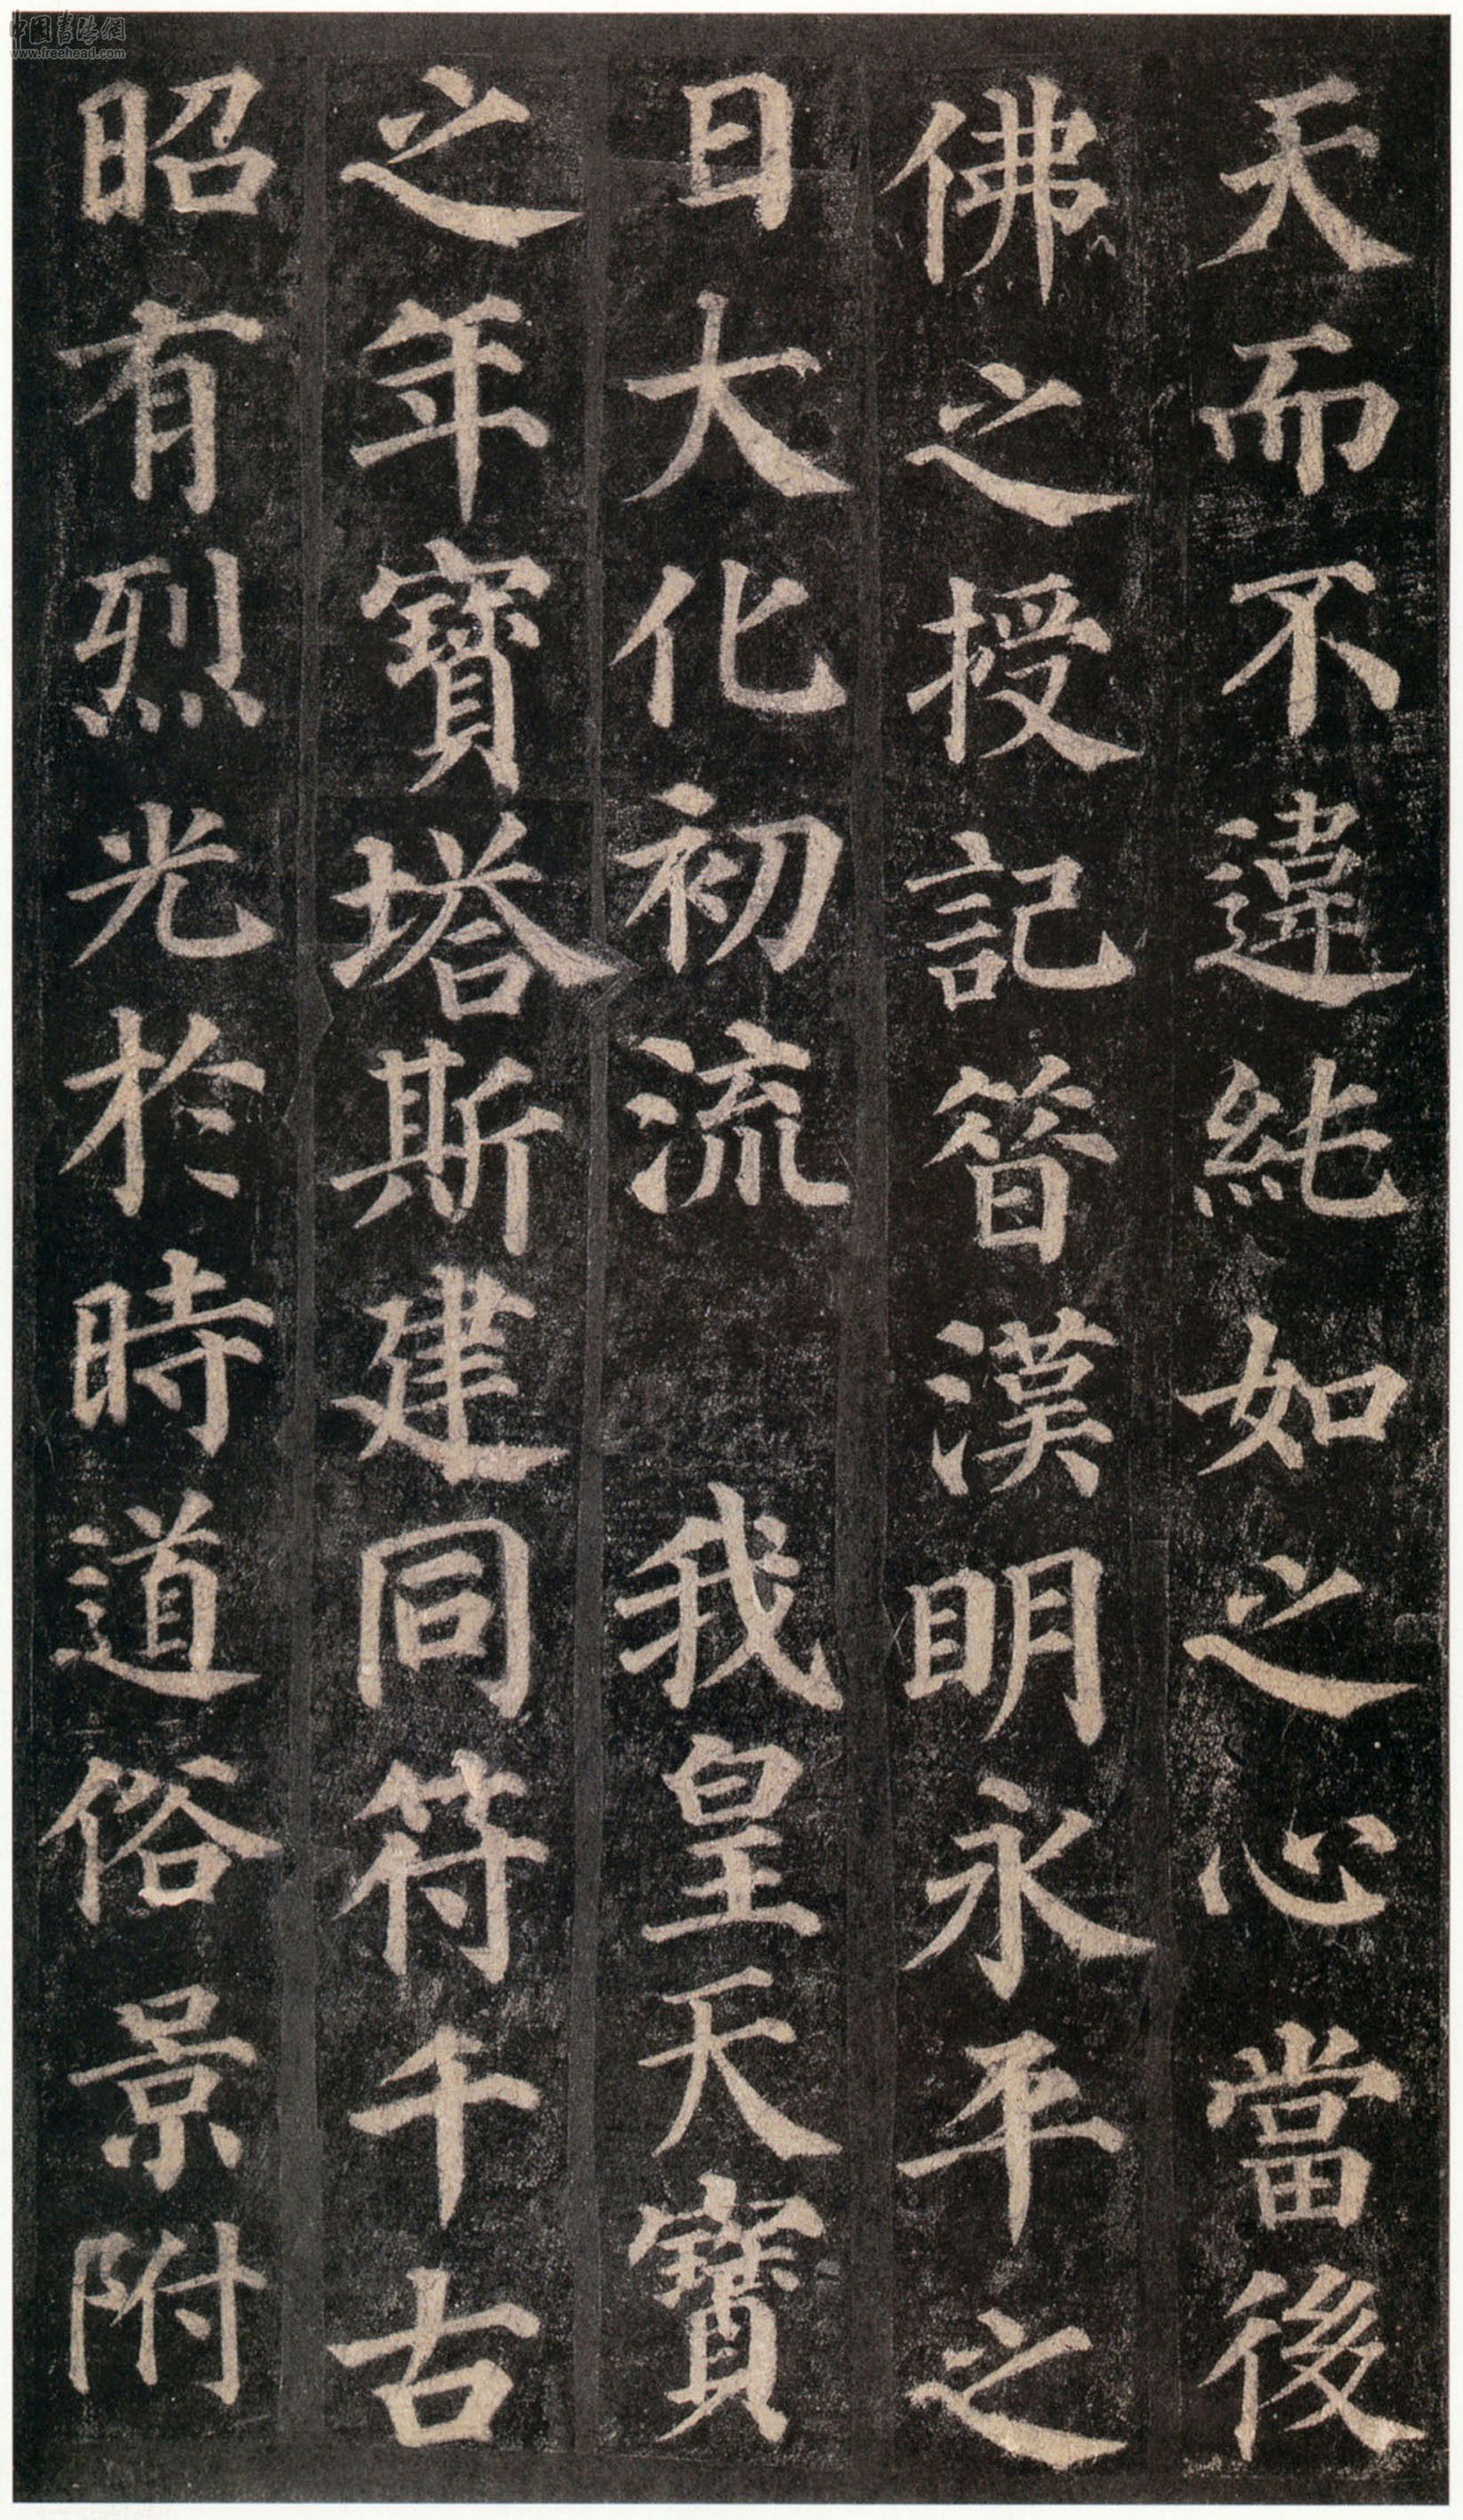 天而不違純如之心當後
佛之授記昔漢明永平之
日大化初流 我皇天寶
之年寶塔斯建同符千古
昭有烈光於時道俗景附
中国书法網
www.freehead.com